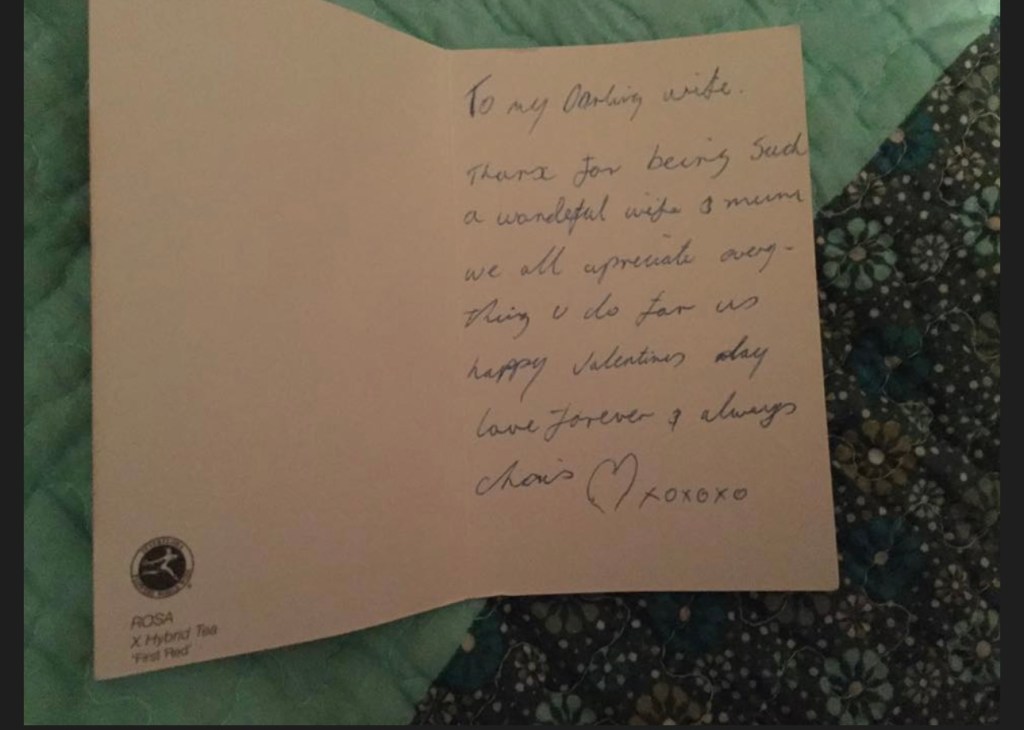 To my Darling wife.
Thanx for being such
a wondeful wife & mum
we all apreciate every-
thing u do for us
happy valentines day
love forever & always
chris xoxoxo
ROSA
X Hybrid Tea
'First Red'